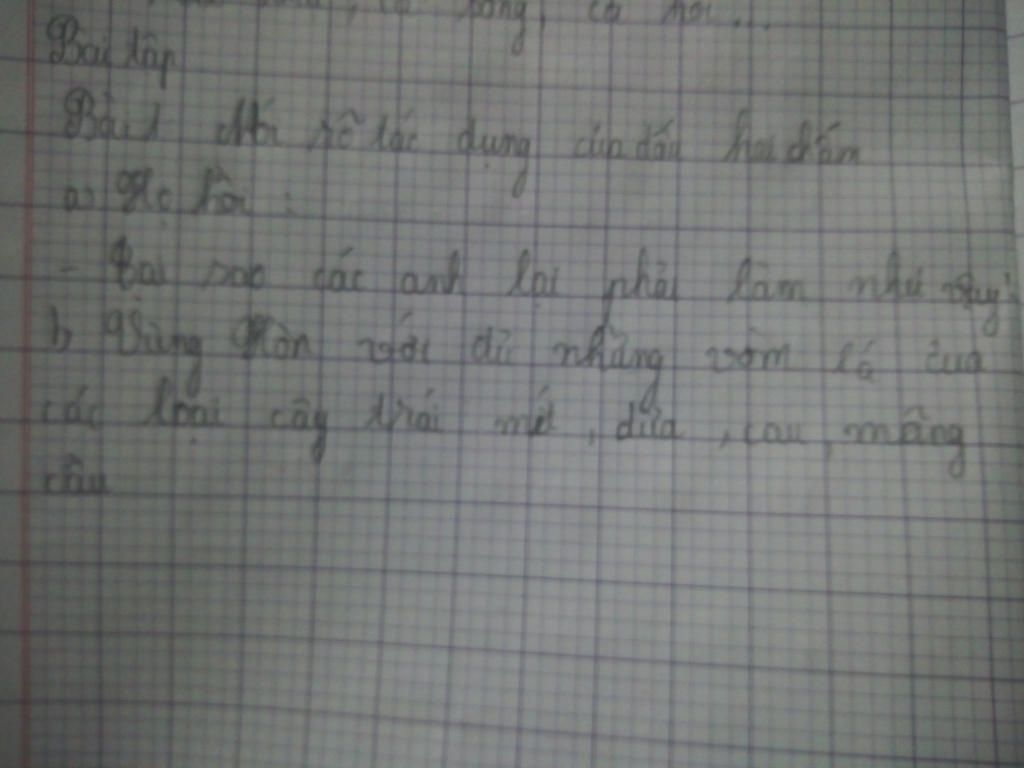 sông, cá hồi...
Bài tập
Bài 1 Nói rõ tác dụng của dấu hai chấm
a) Họ hỏi :
- Tại sao các anh lại phải làm như vậy?
b) Vùng Hòn với đủ những vòm lá của
các loại cây trái mít, dừa, cau, mãng
cầu